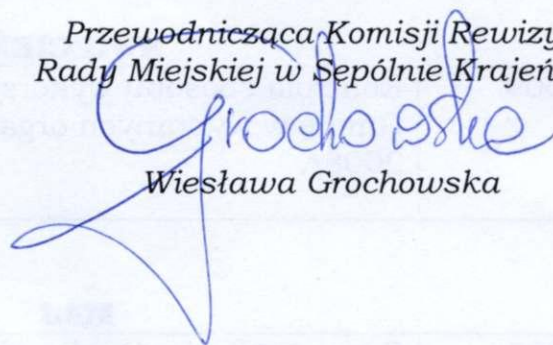 Przewodnicząca Komisji Rewizy
Rady Miejskiej w Sępólnie Krajeń
Grochowska
Wiesława Grochowska